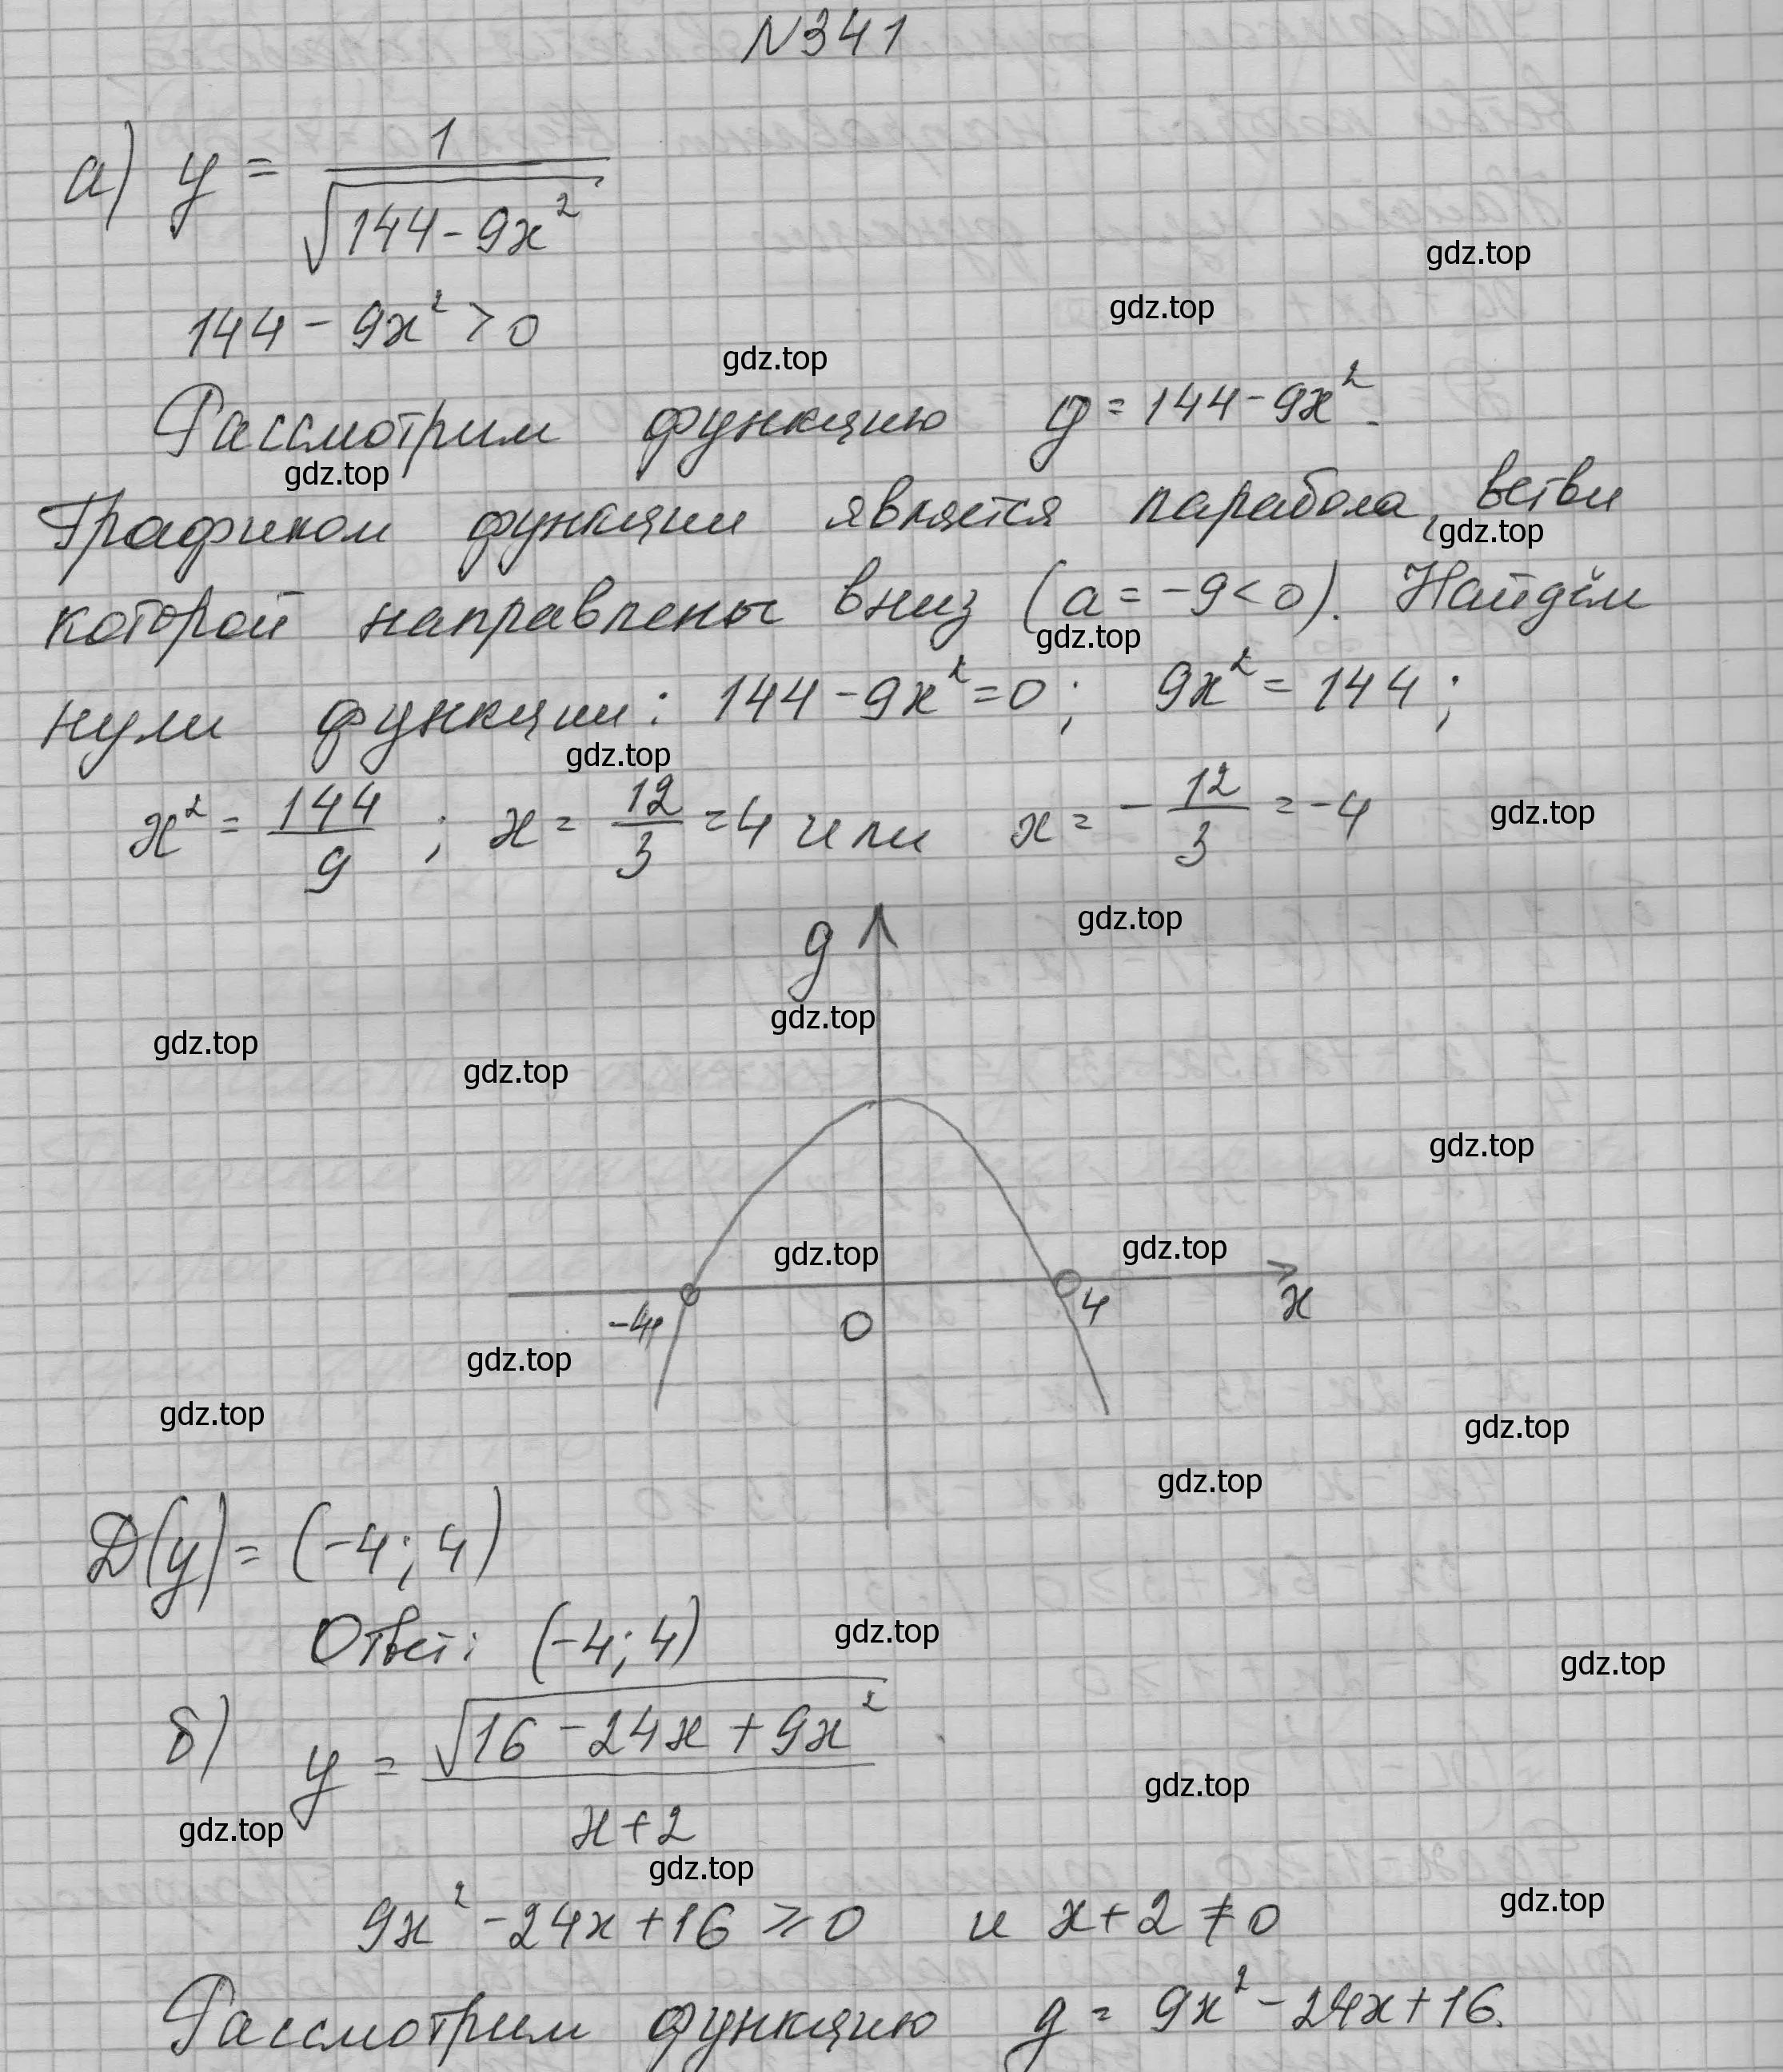 N341
а) y = 1/√(144-9x²)
gdz.top
144 - 9x² > 0
gdz.top
gdz.top
Рассмотрим функцию g = 144-9x².
gdz.top
Графиком функции является парабола, ветви
gdz.top
которой направлены вниз (a = -9<0). Найдём
gdz.top
нули функции: 144-9x²=0; 9x² = 144;
gdz.top
x² = 144/9; x = 12/3 = 4 или x = -12/3 = -4
gdz.top
gdz.top
g
gdz.top
gdz.top
gdz.top
gdz.top
gdz.top
gdz.top
-4 0 4 x
gdz.top
gdz.top
gdz.top
gdz.top
D(y) = (-4; 4)
Ответ: (-4; 4)
gdz.top
gdz.top
б) y = √(16-24x+9x²)/(x+2)
gdz.top
gdz.top
gdz.top
9x²-24x+16 ⩾ 0 и x+2 ≠ 0
gdz.top
Рассмотрим функцию g = 9x²-24x+16.